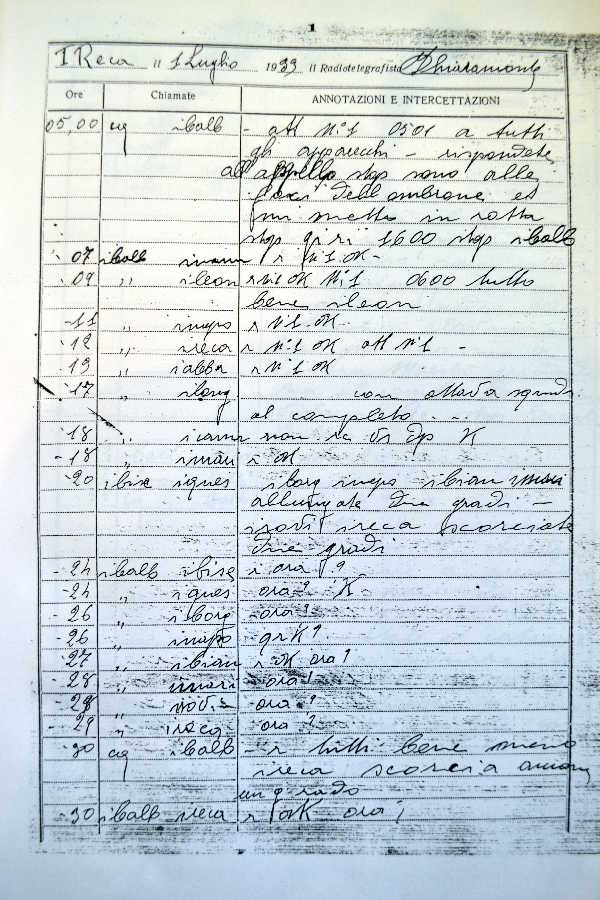 1
I Reca il 1 Luglio 1933 Il Radiotelegrafista Chiaramonte
Ore Chiamate ANNOTAZIONI E INTERCETTAZIONI
05,00 cq ibalb - att n°1 0501 a tutti
gli apparecchi - rispondete
all'appello stop sono alle
foci dell'ombrone et
mi metto in rotta
stop giri 1600 stop ibalb
07 ibalb r n°1 OK -
09 " ileon r n°1 OK N°1 0600 tutto
bene ileon
-11 " inapo r N°1 OK
12 " ireca r n°1 OK att n°1 -
13 " iabba r N°1 OK
17 " ilong con ottava squadr.
al completo . . .
18 " non K
-18 " imari r OK
-20 ibise iques iborg inapo ibian imari
allungate due gradi -
irovi ireca scorciate
due gradi
-24 ibalb ibise r ora ?
-24 " iques ora ? K
-26 " iborg - ora ?
-26 " inapo - qrk ?
27 " ibian r OK ora ?
-28 " imari - ora ?
-28 " irovi - ora ?
-29 " ireca - ora ?
-30 cq ibalb - r tutti bene meno
ireca scorcia ancora
un grado
-30 ibalb ireca r OK ora ?